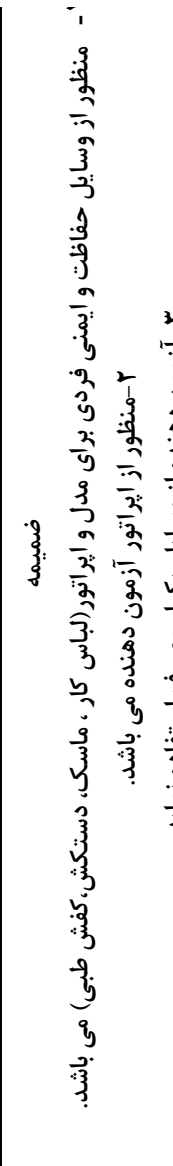 ضمیمه
۱- منظور از وسایل حفاظت و ایمنی فردی برای مدل و اپراتور(لباس کار ، ماسک، دستکش،کفش طبی) می باشد.
۲-منظور از اپراتور آزمون دهنده می باشد.